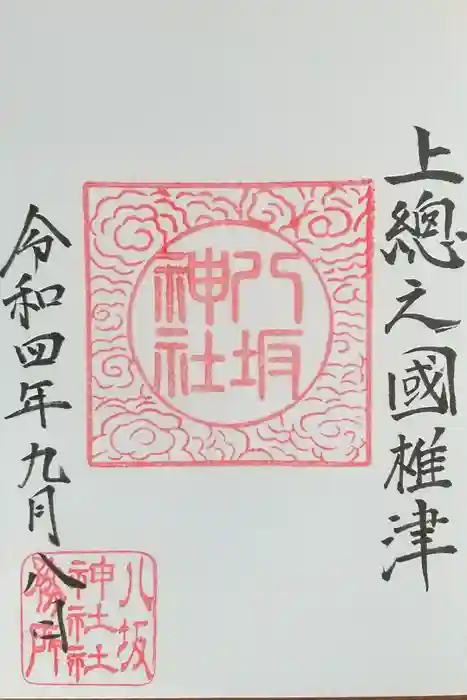 上總之國椎津
八坂
神社
令和四年九月八日
八坂
神社社
務所